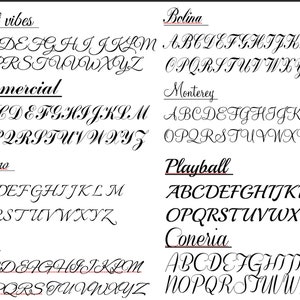 vibes
DEFGHIJKLM
RSTUVWXYZ
mercial
CDEFGHIJKLM
PQRSTUVWXYZ
DEFGHIJKLM
RSTUVWXYZ
DEFGHIJKLM
QRSTUVWXYZ
Bolina
ABCDEFGHIJK
OPQRSTUVWX
Monterey
ABCDEFGHIJK
OPQRSTUVWXY
Playball
ABCDEFGHIJK
OPQRSTUVWX
Coneria
ABCDEFGHI
NOPQRSTUV